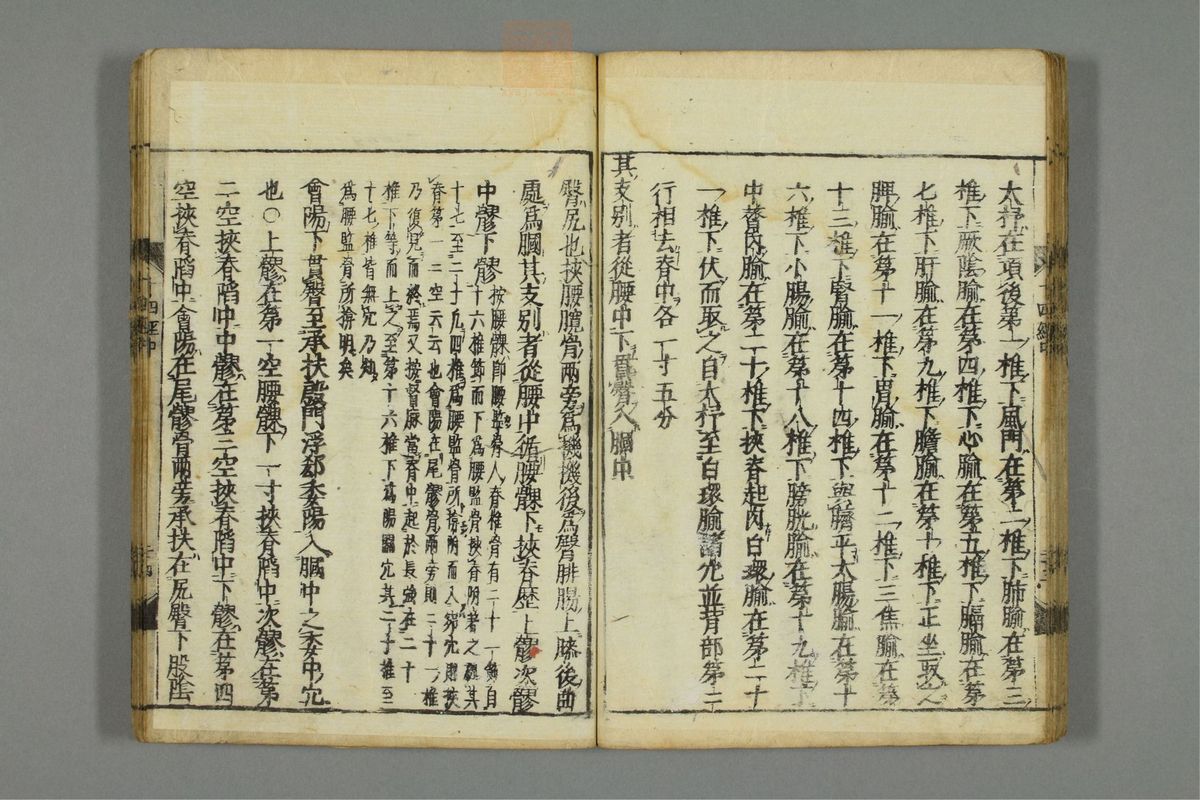 大杼在項後第一椎下風門在第二椎下肺腧在第三
椎下厥陰腧在第四椎下心腧在第五椎下膈腧在第
七椎下肝腧在第九椎下膽腧在第十椎下正坐取之
脾腧在第十一椎下胃腧在第十二椎下三焦腧在第
十三椎下腎腧在第十四椎下與臍平大腸腧在第十
六椎下小腸腧在第十八椎下膀胱腧在第十九椎下
中膂內腧在第二十椎下挾脊起肉白環腧在第二十
一椎下伏而取之自大杼至白環腧諸穴並背部第二
行相去脊中各一寸五分
其支別者從腰中下貫臀入膕中
臀尻也挾腰髖骨兩旁為機機後為臀腓腸上膝後曲
處為膕其支別者從腰中循腰髁下挾脊歷上髎次髎
中髎下髎
按腰髁即腰監骨人脊椎骨有二十一節自
十六椎節而下為腰監骨挾脊附著之處其
十七至二十凡四椎為腰監骨所揜附而八髎穴則挾
脊第一二空云云也會陽在尾髎骨兩旁則二十一椎
乃復見而終焉又按督脉當脊中起於長強在二十一
椎下等而上之至第十六椎下為陽關穴其二十椎至
十七椎皆無穴乃知
為腰監骨所揜明矣
會陽下貫臀至承扶殷門浮郄委陽入膕中之委中穴
也〇上髎在第一空腰髁下一寸挾脊陷中次髎在第
二空挾脊陷中中髎在第三空挾脊陷中下髎在第四
空挾脊陷中會陽在尾髎骨兩旁承扶在尻臀下股陰